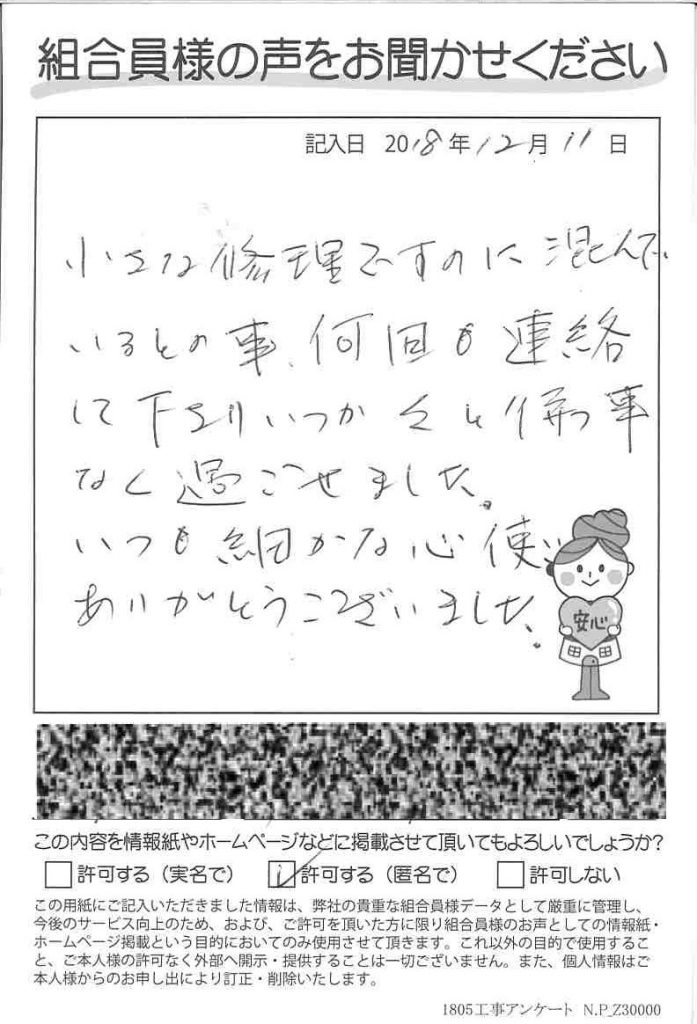 組合員様の声をお聞かせください
記入日 2018年12月11日
小さな修理ですのに混んで
いるとの事、何回も連絡
して下さりいつかと待つ事
なく過ごせました。
いつも細かな心使い
ありがとうございました。
安心
この内容を情報紙やホームページなどに掲載させて頂いてもよろしいでしょうか?
許可する(実名で) 許可する(匿名で) 許可しない
この用紙にご記入いただきました情報は、弊社の貴重な組合員様データとして厳重に管理し、
今後のサービス向上のため、および、ご許可を頂いた方に限り組合員様のお声としての情報紙・
ホームページ掲載という目的においてのみ使用させて頂きます。これ以外の目的で使用するこ
と、ご本人様の許可なく外部へ開示・提供することは一切ございません。また、個人情報はご
本人様からのお申し出により訂正・削除いたします。
1805工事アンケート N.P_Z30000